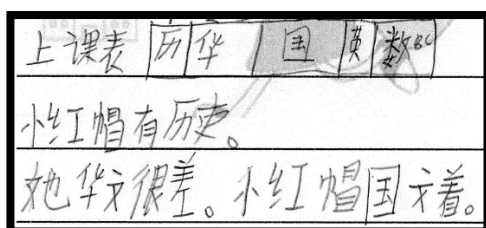 上课表 历 华 国 英 数BC
小红帽有历史。
她华文很差。小红帽国文着。